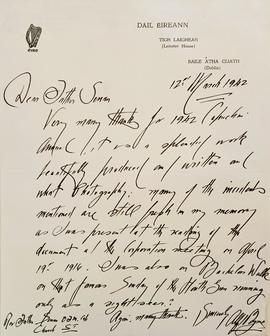 DAIL EIREANN
TIGH LAIGHEAN
(Leinster House)
BAILE ÁTHA CLIATH
(Dublin)
12th March 1942
Dear Father Senan
Very many thanks for 1942 Capuchin
Annual, it was a splendid work
beautifully produced and written and
what Photography: many of the incidents
mentioned are still fresh in my memory
as I was present at the reading of the
document at the Corporation meeting on April
19th 1916. I was also on Bachelors Walk
on that famous Sunday of the Howth Gun running
only as a sightseer.
Again many thanks. Sincerely
Rev Father Senan O.F.M. Cap
Church St